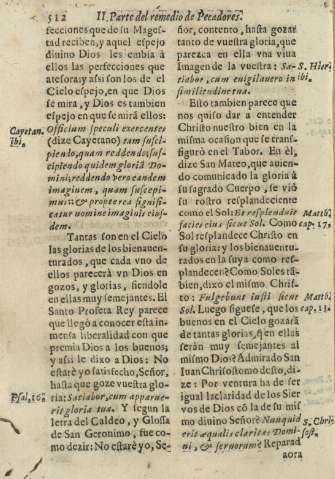 512 II. Parte del remedio de Pecadores.
fecciones que de su Mages-
tad reciben, y aquel espejo
diuino Dios les embia à
ellos las perfecciones que
atesora: y assi son los de el
Cielo espejo, en que Dios
se mira, y Dios es tambien
espejo en que se mirã ellos:
Cayetan. ibi.
Officium speculi exercentes
(dize Cayetano) tam susci-
piendo, quam reddendo; sus-
cipiendo quidem gloriã Do-
mini; reddendo vero eandem
imaginem, quam suscepi-
mus: & propterea signifi-
catur nomine imaginis eius-
dem.
Tantas son en el Cielo
las glorias de los bienauen-
turados, que cada vno de
ellos parecerà vn Dios en
gozos, y glorias, siendole
en ellas muy semejantes. El
Santo Profeta Rey parece
que llegò a conocer esta in-
mensa liberalidad con que
premia Dios a los buenos;
y assi le dixo a Dios: No
estarè yo satisfecho, Señor,
hasta que goze vuestra glo-
Psal. 16.
ria: Satiabor, cum apparue-
rit gloria tua. Y segun la
letra del Caldeo, y Glossa
de San Geronimo, fue co-
mo dezir: No estarè yo, Se-
ñor, contento, hasta gozar
tanto de vuestra gloria, que
parezca en ella vna viua
imagen de la vuestra: Sa-
S. Hier. ibi.
tiabor, cum euigilauero in
similitudine tua.
Esto tambien parece que
nos quiso dar a entender
Christo nuestro bien en la
misma ocasion que se trans-
figurò en el Tabor. En èl,
dize San Mateo, que auien-
do comunicado la gloria à
su sagrado Cuerpo, se viò
su rostro resplandeciente
como el Sol: Et resplenduit
Matth. cap. 17.
facies eius sicut Sol. Como
Sol resplandece Christo en
su gloria: y los bienauentu-
rados en la suya como res-
plandecen? Como Soles tã-
bien, dixo el mismo Chris-
to: Fulgebunt iusti sicut
Matth. cap. 13.
Sol. Luego siguese, que los
buenos en el Cielo gozarà
de tantas glorias, q̃ en ellas
serán muy semejantes al
mismo Dios? Admirado San
Iuan Chrisostomo desto, di-
ze: Por ventura ha de ser
igual la claridad de los Sier
vos de Dios cõ la de su mis
mo diuino Señor? Nunquid
S. Chris
erit æqualis claritas Domi-
ni, & seruorum? Reparad
aora